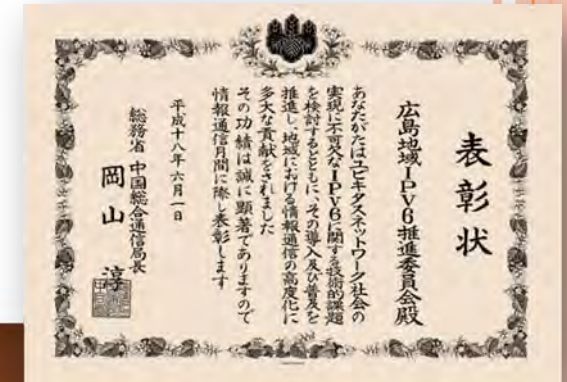 表彰状
広島地域IPV6推進委員会殿
あなたがたはユビキタスネットワーク社会の
実現に不可欠なIPV6に関する技術的課題
を検討するとともに、その導入及び普及を
推進し、地域における情報通信の高度化に
多大な貢献をされました
その功績は誠に顕著でありますので
情報通信月間に際し表彰します
平成十八年六月一日
総務省 中国総合通信局長
岡山 淳